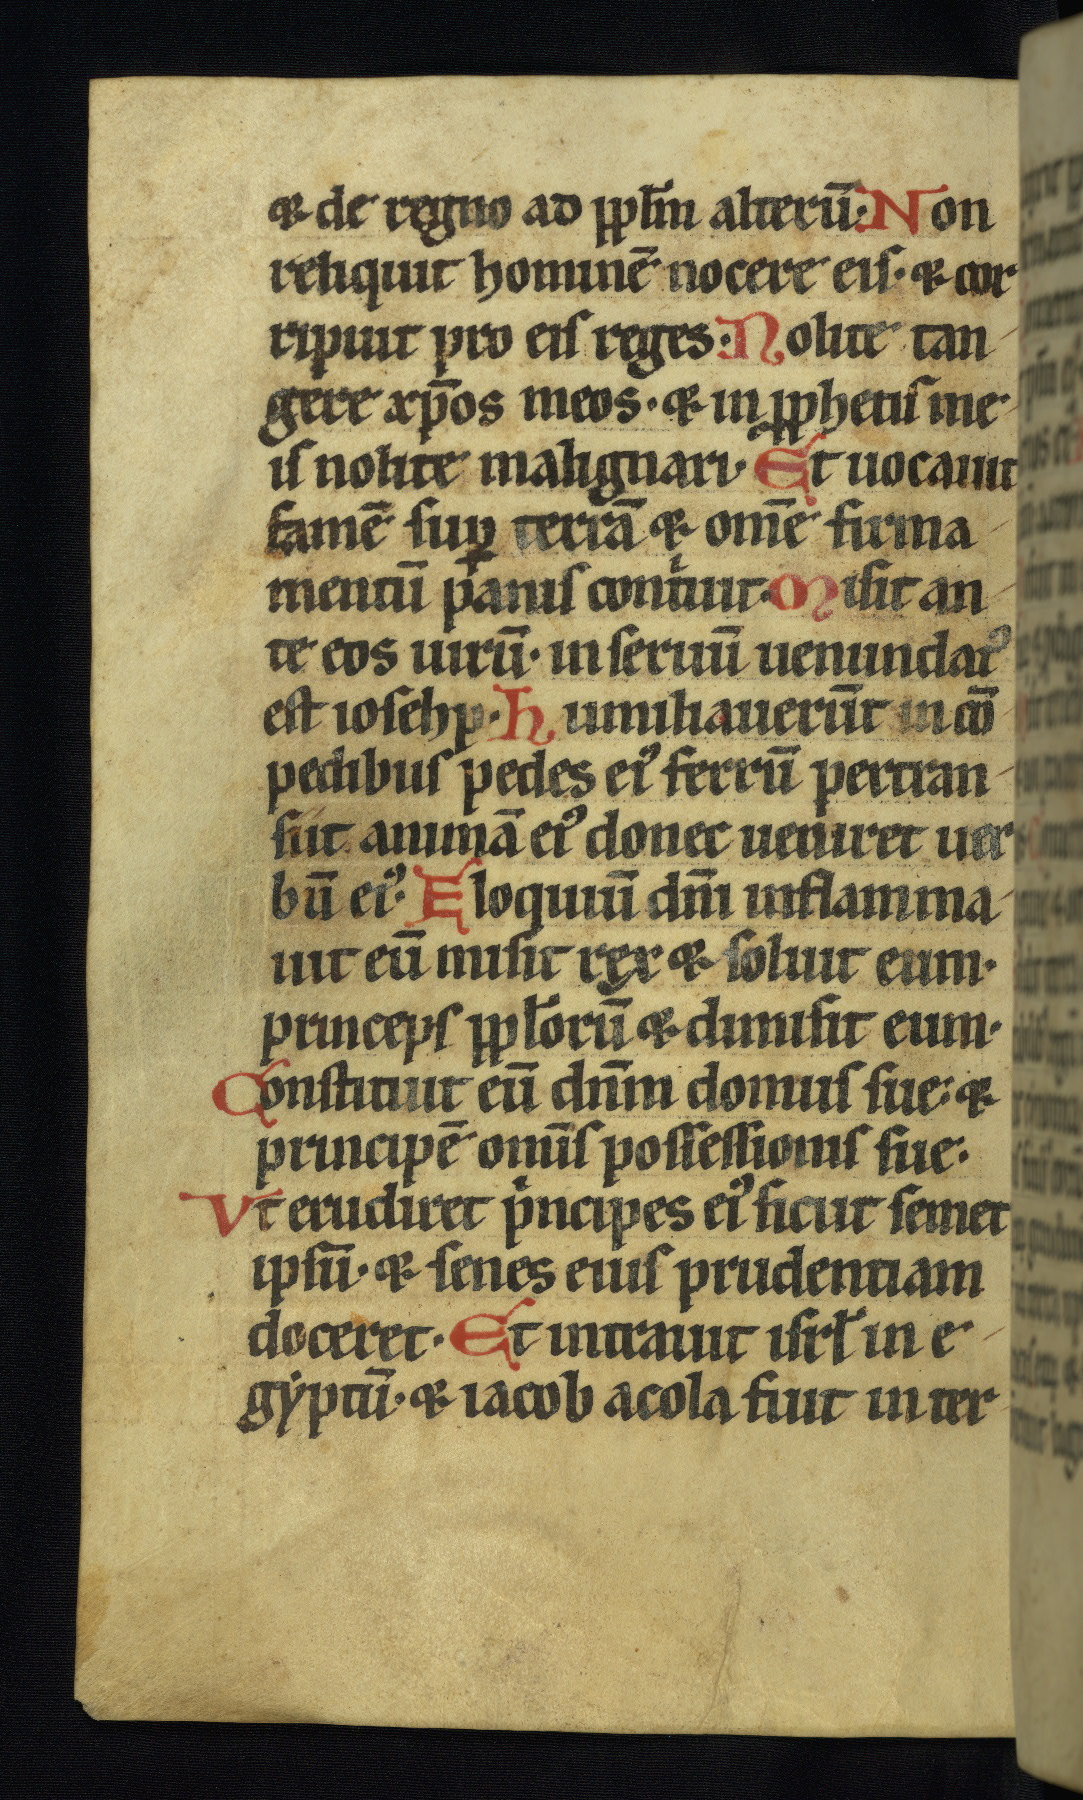 & de regno ad pplm̄ alterū. Non
reliquit hominē nocere eis. & cor
ripuit pro eis reges. Nolite tan
gere xp̄os meos. & in pphetis me
is nolite malignari. Et uocauit
famē suꝑ terrā & om̄e firma
mentū panis contͥuit. Misit an
te eos uirū. in seruū uenundatꝰ
est iosehp. humiliauerūt in cō
pedibus pedes eiꝰ ferrū pertran
siit animā eiꝰ donec ueniret uer
bū eiꝰ. Eloquiū dn̄i inflamma
uit eū misit rex & soluit eum.
princeps pplōrū & dimisit eum.
Constituit eū dn̄m domus sue. &
principē om̄is possessionis sue.
Vt erudiret pͥncipes eiꝰ sicut semet
ipsū. & senes eius prudentiam
doceret. Et intrauit isrl̄ in e
gẏptū. & iacob acola fuit in ter